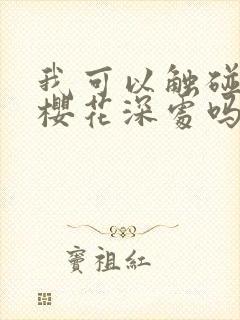 我可以触碰
樱花深处吗
窦祖红